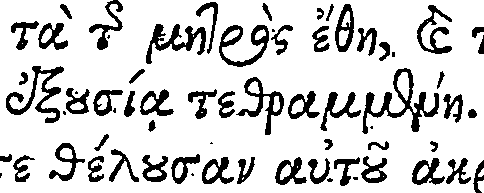 τὰ τῆς μητρὸς ἔθη, ἐν τ
ἐξουσίᾳ τεθραμμένη.
τε θέλουσαν αὐτοῦ ἀκρ